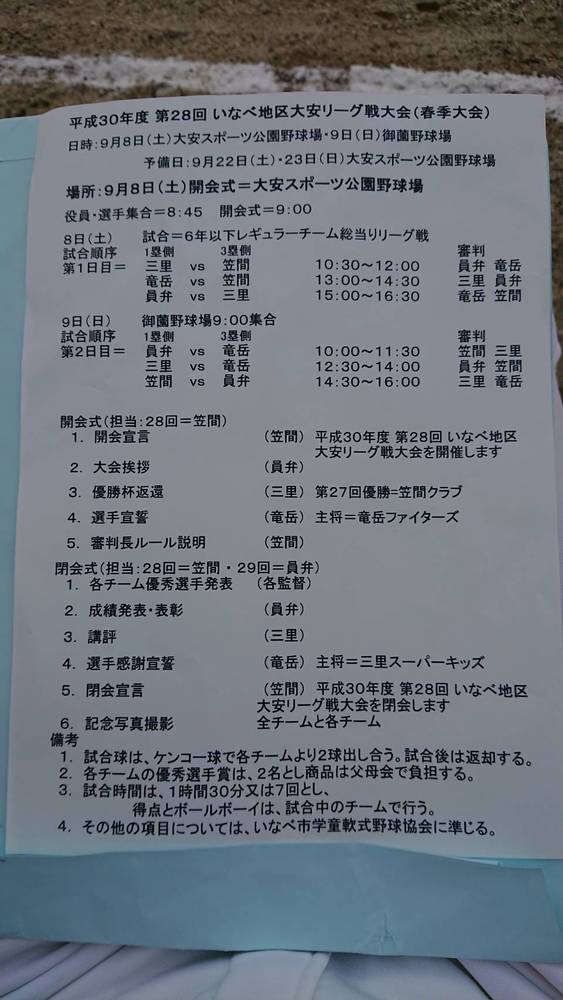 平成30年度 第28回 いなべ地区大安リーグ戦大会(春季大会)
日時:9月8日(土)大安スポーツ公園野球場・9日(日)御薗野球場
予備日:9月22日(土)・23日(日)大安スポーツ公園野球場
場所:9月8日(土)開会式=大安スポーツ公園野球場
役員・選手集合=8:45 開会式=9:00
8日(土) 試合=6年以下レギュラーチーム総当りリーグ戦
試合順序 1塁側 3塁側 審判
第1日目= 三里 vs 笠間 10:30~12:00 員弁 竜岳
竜岳 vs 員弁 13:00~14:30 三里 員弁
員弁 vs 三里 15:00~16:30 竜岳 笠間
9日(日) 御薗野球場9:00集合
試合順序 1塁側 3塁側 審判
第2日目= 員弁 vs 竜岳 10:00~11:30 笠間 三里
三里 vs 竜岳 12:30~14:00 員弁 笠間
笠間 vs 員弁 14:30~16:00 三里 竜岳
開会式(担当:28回=笠間)
1. 開会宣言 (笠間) 平成30年度 第28回 いなべ地区
大安リーグ戦大会を開催します
2. 大会挨拶 (員弁)
3. 優勝杯返還 (三里) 第27回優勝=笠間クラブ
4. 選手宣誓 (竜岳) 主将=竜岳ファイターズ
5. 審判長ルール説明 (笠間)
閉会式(担当:28回=笠間・29回=員弁)
1. 各チーム優秀選手発表 (各監督)
2. 成績発表・表彰 (員弁)
3. 講評 (三里)
4. 選手感謝宣誓 (竜岳) 主将=三里スーパーキッズ
5. 閉会宣言 (笠間) 平成30年度 第28回 いなべ地区
大安リーグ戦大会を閉会します
6. 記念写真撮影 全チームと各チーム
備考
1. 試合球は、ケンコー球で各チームより2球出し合う。試合後は返却する。
2. 各チームの優秀選手賞は、2名とし商品は父母会で負担する。
3. 試合時間は、1時間30分又は7回とし、
得点とボールボーイは、試合中のチームで行う。
4. その他の項目については、いなべ市学童軟式野球協会に準じる。